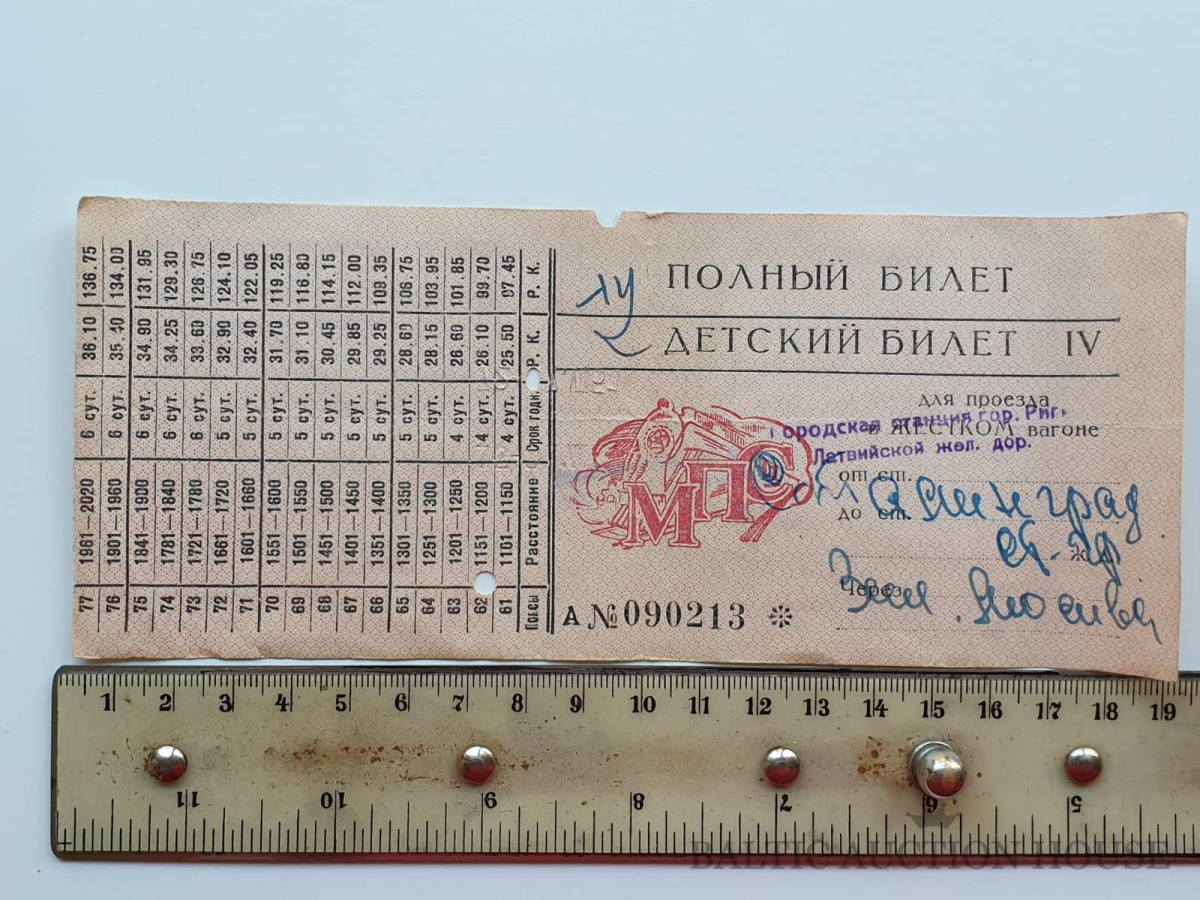 ПОЛНЫЙ БИЛЕТ
ДЕТСКИЙ БИЛЕТ IV
для проезда
в ЖЕСТКОМ вагоне
Городская станция гор. Риг
Латвийской жел. дор.
от ст.
до ст.
ж. д.
Через
МПС
А № 090213 *
Поясы Расстояние Срок годн. Р. К. Р. К.
61 1101—1150 4 сут. 25.50 97.45
62 1151—1200 4 сут. 26.10 99.70
63 1201—1250 4 сут. 26.60 101.85
64 1251—1300 5 сут. 28.15 103.95
65 1301—1350 5 сут. 28.60 106.75
66 1351—1400 5 сут. 29.25 109.35
67 1401—1450 5 сут. 29.85 112.00
68 1451—1500 5 сут. 30.45 114.15
69 1501—1550 5 сут. 31.10 116.80
70 1551—1600 5 сут. 31.70 119.25
71 1601—1660 5 сут. 32.40 122.05
72 1661—1720 6 сут. 32.90 124.10
73 1721—1780 6 сут. 33.60 126.75
74 1781—1840 6 сут. 34.25 129.30
75 1841—1900 6 сут. 34.90 131.95
76 1901—1960 6 сут. 35.40 134.00
77 1961—2020 6 сут. 36.10 136.75
1 2 3 4 5 6 7 8 9 10 11 12 13 14 15 16 17 18 19
11 10 9 8 7 6 5
BALTIC AUCTION HOUSE